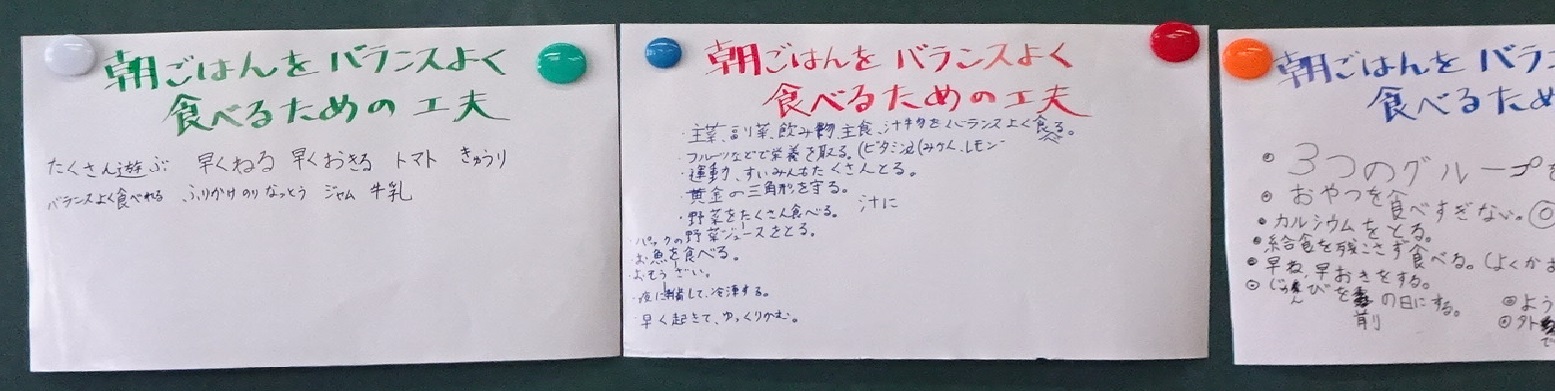 朝ごはんを バランスよく
食べるための工夫
たくさん遊ぶ 早くねる 早くおきる トマト きゅうり
バランスよく食べれる ふりかけ のり なっとう ジャム 牛乳
朝ごはんを バランスよく
食べるための工夫
・主菜、副菜、飲み物、主食、汁物をバランスよく食べる。
・フルーツなどで栄養を取る。(ビタミン)(みかん、レモン
・運動、すいみんもたくさんとる。
・黄金の三角形を守る。
・野菜をたくさん食べる。 汁に
・パックの野菜ジュースをとる。
・お魚を食べる。
・おぞうざい。
・夜に準備して、冷凍する。
・早く起きて、ゆっくりかむ。
朝ごはんを バラ
食べるため
・3つのグループ
・おやつを食べすぎない。◎
・カルシウムをとる。
・給食を残こさず食べる。(よくか
・早ね、早おきをする。
◎じゅんびを前の日にする。
◎よう
◎外
で